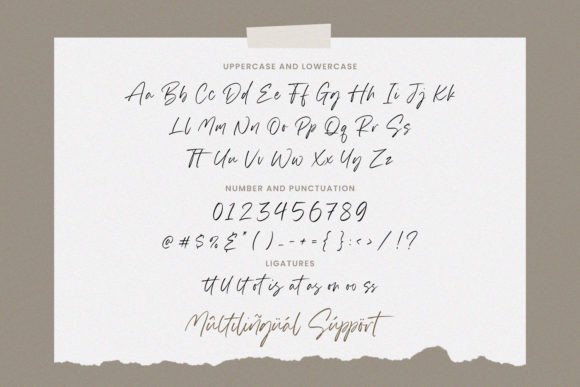 UPPERCASE AND LOWERCASE
Aa Bb Cc Dd Ee Ff Gg Hh Ii Jj Kk
Ll Mm Nn Oo Pp Qq Rr Ss
Tt Uu Vv Ww Xx Yy Zz
NUMBER AND PUNCTUATION
0123456789
@ # $ % & * ( ) _ - + = { } : < > / ! ?
LIGATURES
tt ll lt ot is at as on oo ss
Mûltiliñgüál Súppört